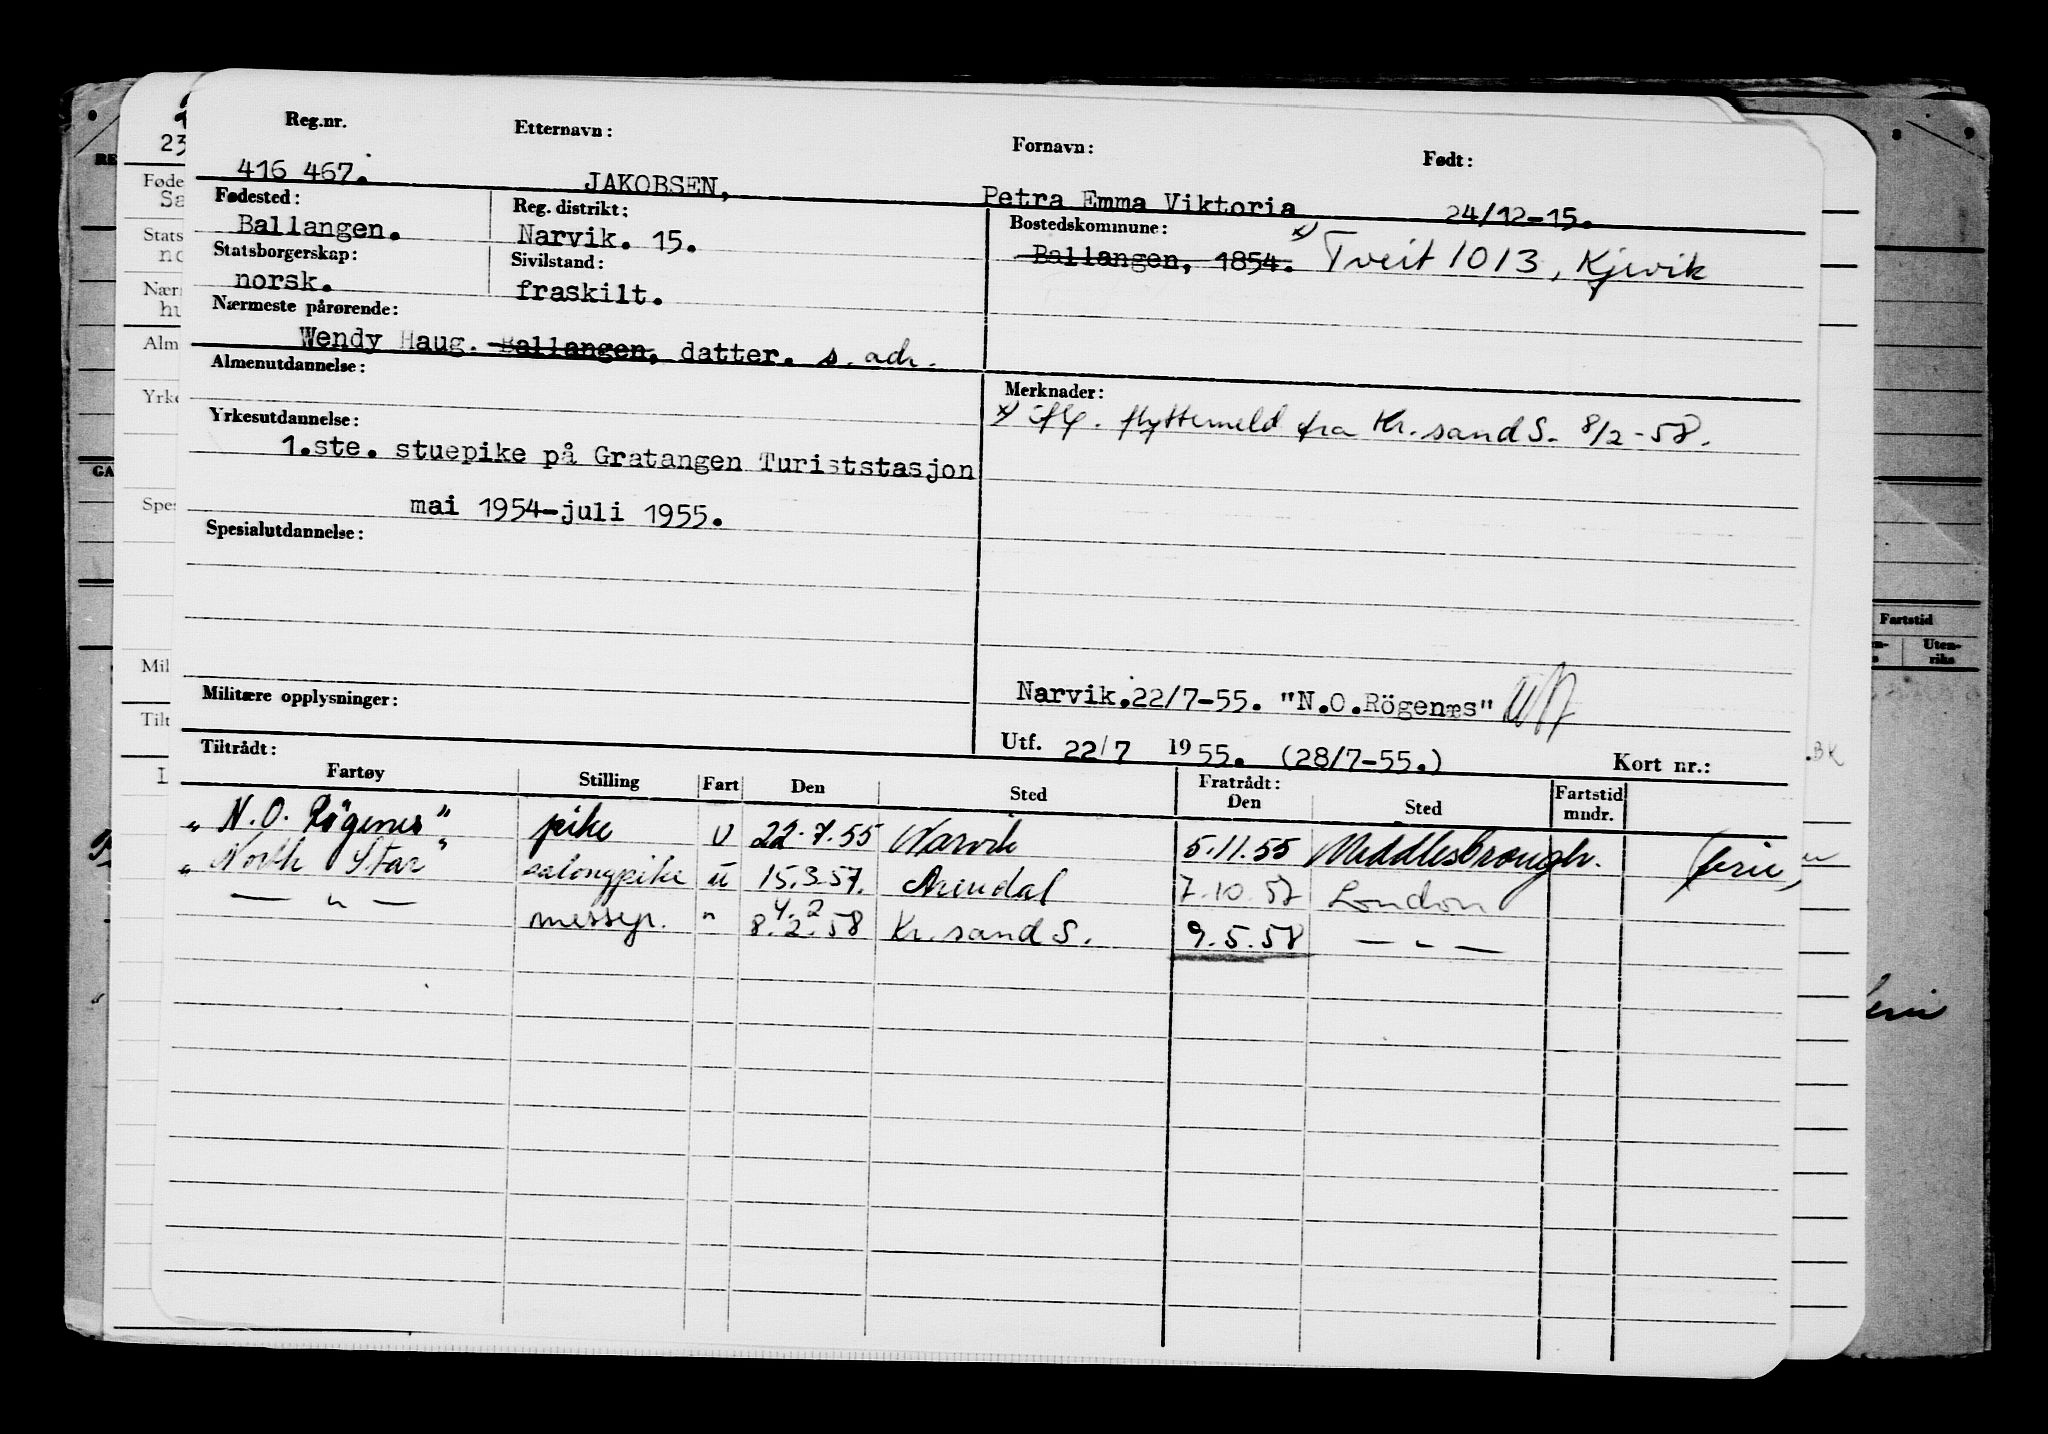 Reg.nr. Etternavn: Fornavn: Født:
416 467. JAKOBSEN, Petra Emma Viktoria 24/12-15.
Fødested: Reg. distrikt: Bostedskommune:
Ballangen. Narvik. 15. Ballangen, 1854. x) Tveit 1013, Kjevik
Statsborgerskap: Sivilstand:
norsk. fraskilt.
Nærmeste pårørende:
Wendy Haug. Ballangen, datter. s. adr.
Almenutdannelse: Merknader:
x) iflg. flyttemeld fra Kr.sand S. 8/2-58.
Yrkesutdannelse:
1.ste. stuepike på Gratangen Turiststasjon
mai 1954-juli 1955.
Spesialutdannelse:
Militære opplysninger: Narvik.22/7-55. "N.O.Rögenæs"
Utf. 22/7 1955. (28/7-55.) Kort nr.:
Tiltrådt: Fratrådt:
Fartøy Stilling Fart Den Sted Den Sted Fartstid mndr.
"N.O. Rögenes" pike U 22.7.55 Narvik 5.11.55 Middlesbrough. ferie,
"North Star" salongpike u 15.3.57. Arendal 7.10.57 London
— " — messep. " 8.2.58 4.2 Kr.sand S. 9.5.58 — " —
23
RE
Føde
Sa
Stats
no
Nær
hu
Alm
Yrke
GA
Spes
Mil
Tilt
Fartstid
Uten-
riks